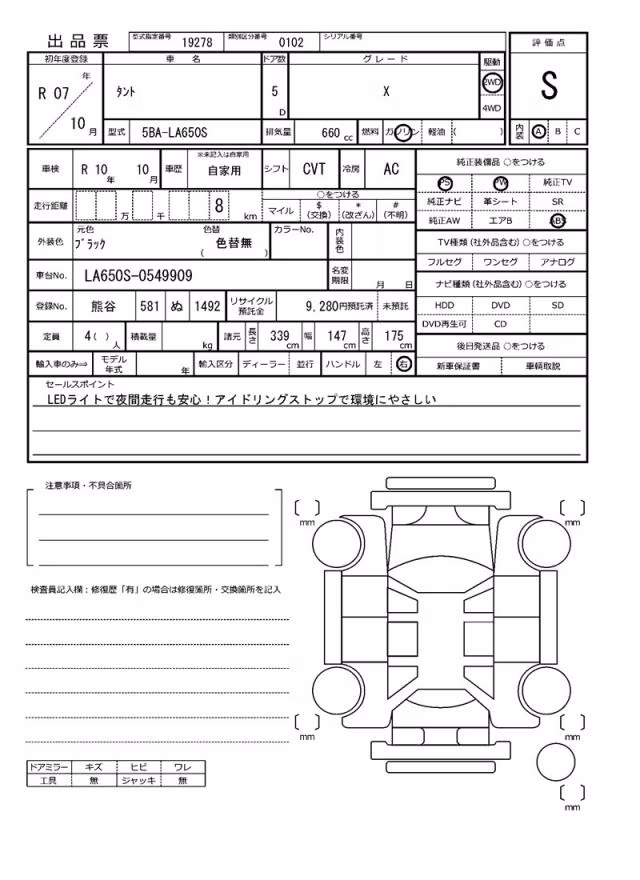 出品票 型式指定番号 19278 類別区分番号 0102 シリアル番号
評価点
初年度登録 車名 ドア数 グレード 駆動
R 07 年 10 月 タント 5 D X 2WD 4WD
S
型式 5BA-LA650S 排気量 660 cc 燃料 ガソリン 軽油 ( )
内装 A B C
車検 R 10 年 10 月 車歴 ※未記入は自家用 自家用 シフト CVT 冷房 AC
純正装備品 ○をつける
PS PW 純正TV
純正ナビ 革シート SR
純正AW エアB ABS
走行距離 万 千 8 km ○をつける
マイル $ (交換) * (改ざん) # (不明)
外装色 元色 ブラック 色替 色替無 ( ) カラーNo. 内装色
TV種類 (社外品含む) ○をつける
フルセグ ワンセグ アナログ
車台No. LA650S-0549909 名変期限 月 日
ナビ種類 (社外品含む) ○をつける
HDD DVD SD
DVD再生可 CD
登録No. 熊谷 581 ぬ 1492 リサイクル預託金 9,280円預託済 未預託
定員 4 ( ) 人 積載量 kg 諸元 長さ 339 cm 幅 147 cm 高さ 175 cm
後日発送品 ○をつける
新車保証書 車輌取説
輸入車のみ⇒ モデル年式 年 輸入区分 ディーラー 並行 ハンドル 左 右
セールスポイント
LEDライトで夜間走行も安心！アイドリングストップで環境にやさしい
注意事項・不具合箇所
mm
mm
検査員記入欄：修復歴「有」の場合は修復箇所・交換箇所を記入
mm
mm
ドアミラー キズ ヒビ ワレ
工具 無 ジャッキ 無
mm